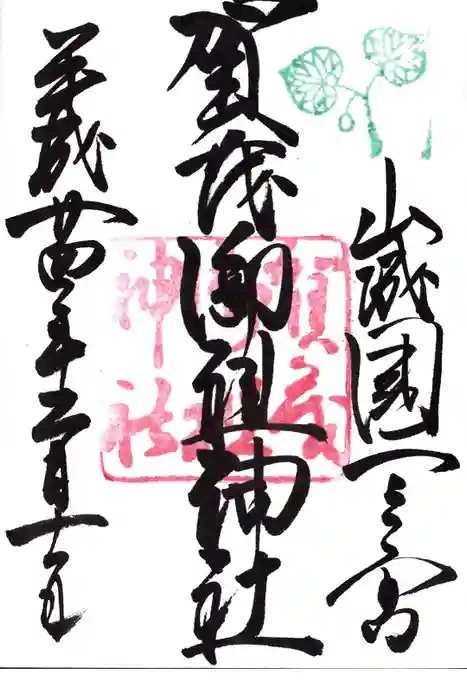 山城國一之宮
賀茂御祖神社
平成廿四年二月十一日
賀茂
御祖
神社